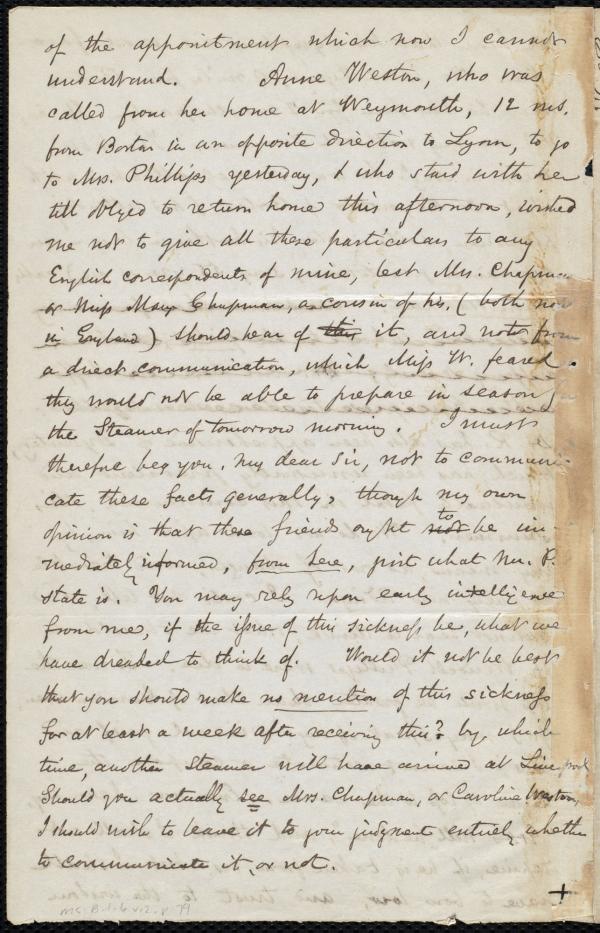 of the appointment which now I cannot
understand. Anne Weston, who was
called from her home at Weymouth, 12 ms.
from Boston in an opposite direction to Lynn, to go
to Mrs. Phillips yesterday, & who staid with her
till obliged to return home this afternoon, wished
me not to give all these particulars to any
English correspondents of mine, lest Mrs. Chapman
or Miss Mary Chapman, a cousin of his, (both now
in England) should hear of this it, and not from
a direct communication, which Miss W. feared
they would not be able to prepare in season,
the Steamer of tomorrow morning. I must
therefore beg you, my dear Sir, not to communi-
cate these facts generally, though my own
opinion is that these friends ought not to be im-
mediately informed, from here, just what Mr. P.
state is. You may rely upon early intelligence
from me, if the issue of this sickness be, what we
have dreaded to think of. Would it not be best
that you should make no mention of this sickness
for at least a week after receiving this? by which
time, another Steamer will have arrived at Liverpool
Should you actually see Mrs. Chapman, or Caroline Weston,
I should wish to leave it to your judgment entirely whether
to communicate it, or not.
+
Ms. B.1.6 v.2, p. 79